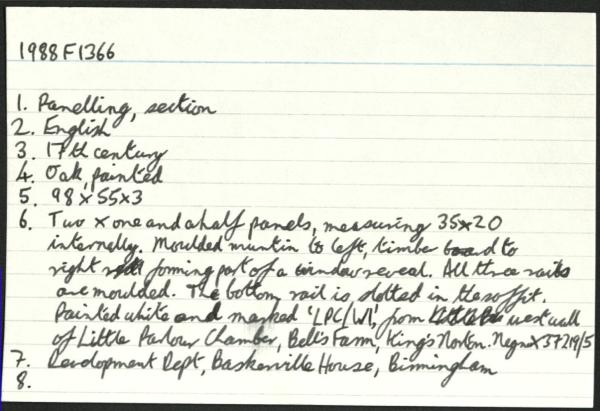 1988F1366
1. Panelling, section
2. English
3. 17th century
4. Oak, painted
5. 98 x 55 x 3
6. Two x one and a half panels, measuring 35 x 20
internally. Moulded muntin to left, timber board to
right forming part of a window reveal. All three rails
are moulded. The bottom rail is slotted in the soffit.
Painted white and marked 'LPC/W1', from west wall
of Little Parlour Chamber, Bell's Farm, King's Norton. Negno X37219/5
7. Development Dept, Baskerville House, Birmingham
8.